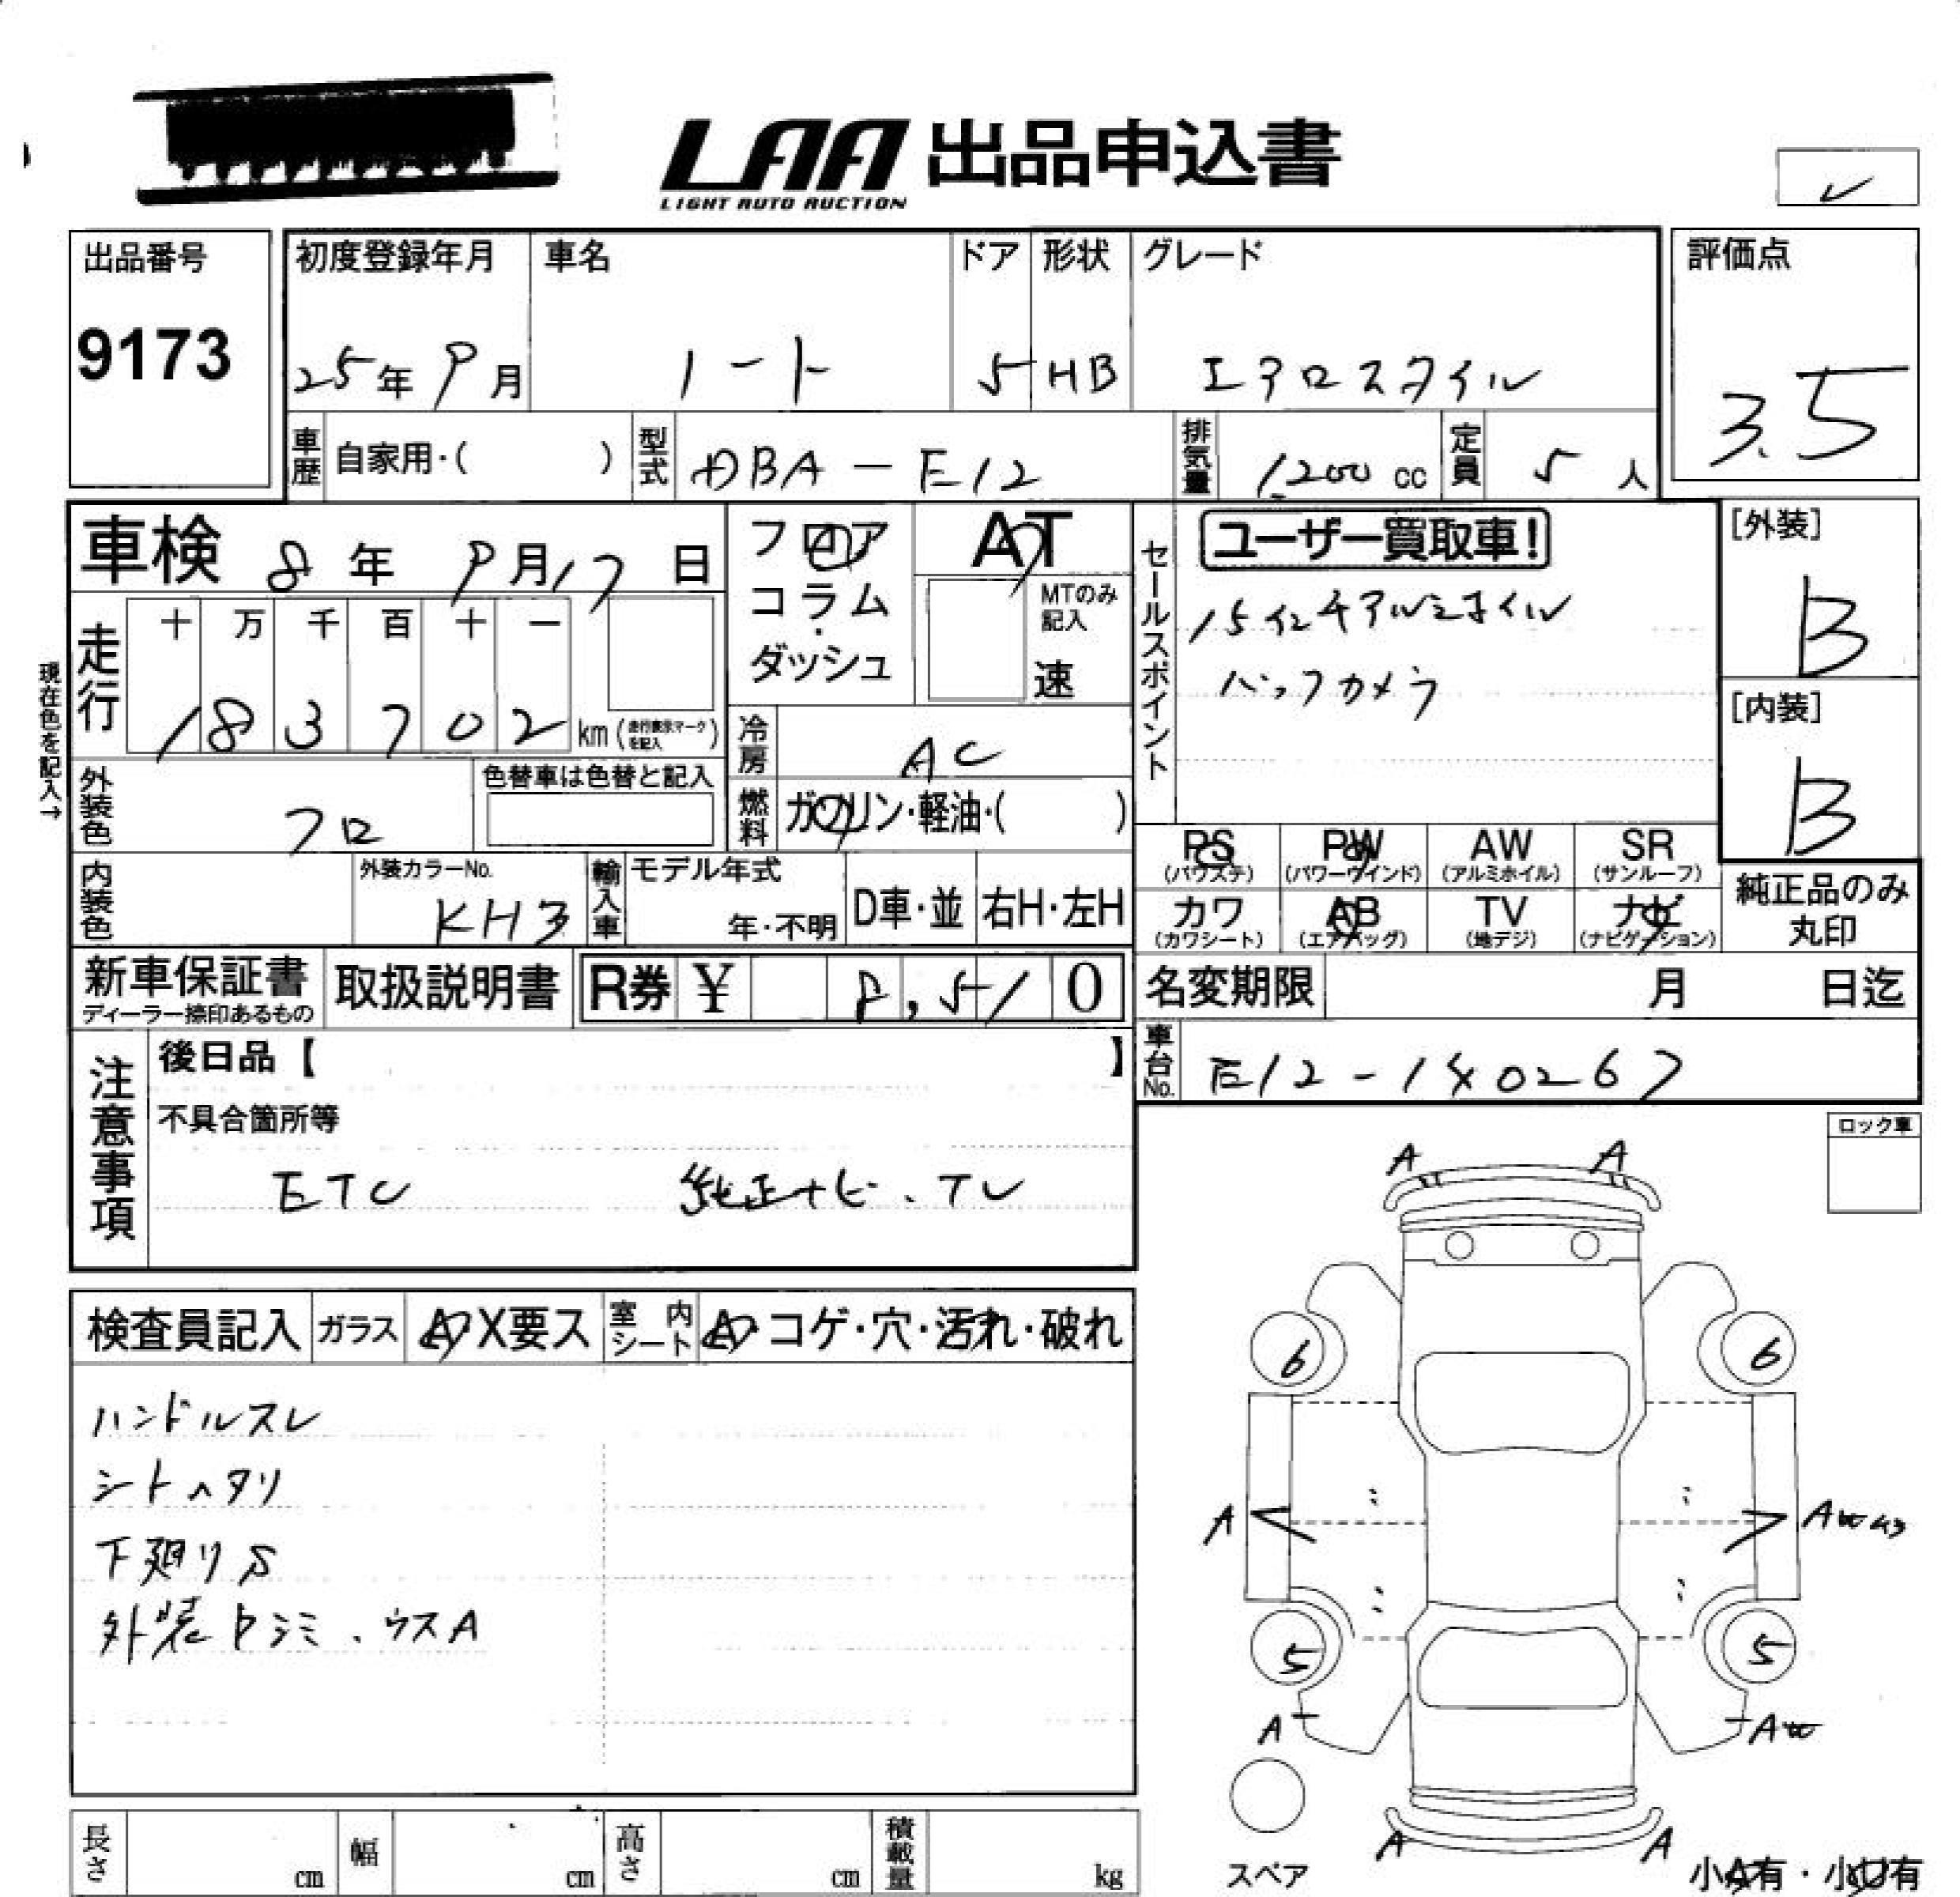 LAA 出品申込書
LIGHT AUTO AUCTION
レ
出品番号
9173
初度登録年月
25年 9月
車名
ノート
ドア
5
形状
HB
グレード
エアロスタイル
評価点
3.5
車歴 自家用・( )
型式 DBA-E12
排気量 1200 cc
定員 5 人
車検 8年 9月17日
現在色を記入→
走行 十 万 千 百 十 一
183702 km (走行表示マークを記入)
フロア
コラム・
ダッシュ
AT
MTのみ記入
速
冷房 AC
燃料 ガソリン・軽油・( )
セールスポイント
ユーザー買取車!
15インチアルミホイル
バックカメラ
[外装]
B
[内装]
B
外装色 クロ
色替車は色替と記入
内装色
外装カラーNo.
KH3
輸入車
モデル年式
年・不明
D車・並
右H・左H
PS (パワステ)
PW (パワーウインド)
AW (アルミホイル)
SR (サンルーフ)
カワ (カワシート)
AB (エアバッグ)
TV (地デジ)
ナビ (ナビゲーション)
純正品のみ
丸印
新車保証書
ディーラー捺印あるもの
取扱説明書
R券 ¥ 8,510
名変期限 月 日迄
車台No. E12-140267
注意事項
後日品【 】
不具合箇所等
ETC 純正ナビ、TV
ロック車
検査員記入 ガラス A・X要ス 室内シート A・コゲ・穴・汚れ・破れ
ハンドルスレ
シートヘタリ
下廻りS
外装中シミ、ウスA
A A
6 6
A A
5 5
A A
A A
スペア
小A有・小U有
長さ cm
幅 cm
高さ cm
積載量 kg